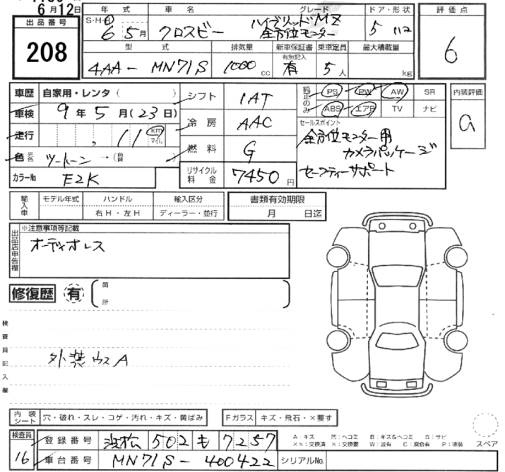 6月12日
出品番号
208
年式
車名
グレード
ドア・形状
評価点
S・H・R
6 5月
クロスビー
ハイブリッドMZ
全方位モニター
5
6
型式
排気量
新車保証書
乗車定員
最大積載量
有別記入
4AA- MN71S
1000 cc
有
5人
kg
車歴 自家用・レンタ( )
シフト
1AT
PS PW AW SR
内装評価
ABS エアB TV ナビ
a
車検 9年5月(23日)
冷房
AAC
セールスポイント
走行 11
燃料
G
全方位モニター用
カメラパッケージ
色 ツートーン →
セーフティーサポート
カラーNo E2K
リサイクル料金
7450円
輸入車
モデル年式
ハンドル
輸入区分
書類有効期限
右H・左H
ディーラー・並行
月 日迄
出品店申告欄
※注意事項等記載
オーディオレス
修復歴 有
箇所
検査員記入欄
外装ウスA
内装シート
穴・破れ・スレ・コゲ・汚れ・キズ・黄ばみ
Fガラス キズ・飛石・×要す
検査員
16
登録番号 浜松 502 も 7257
車台番号 MN71S-400422
シリアルNo.
スペア